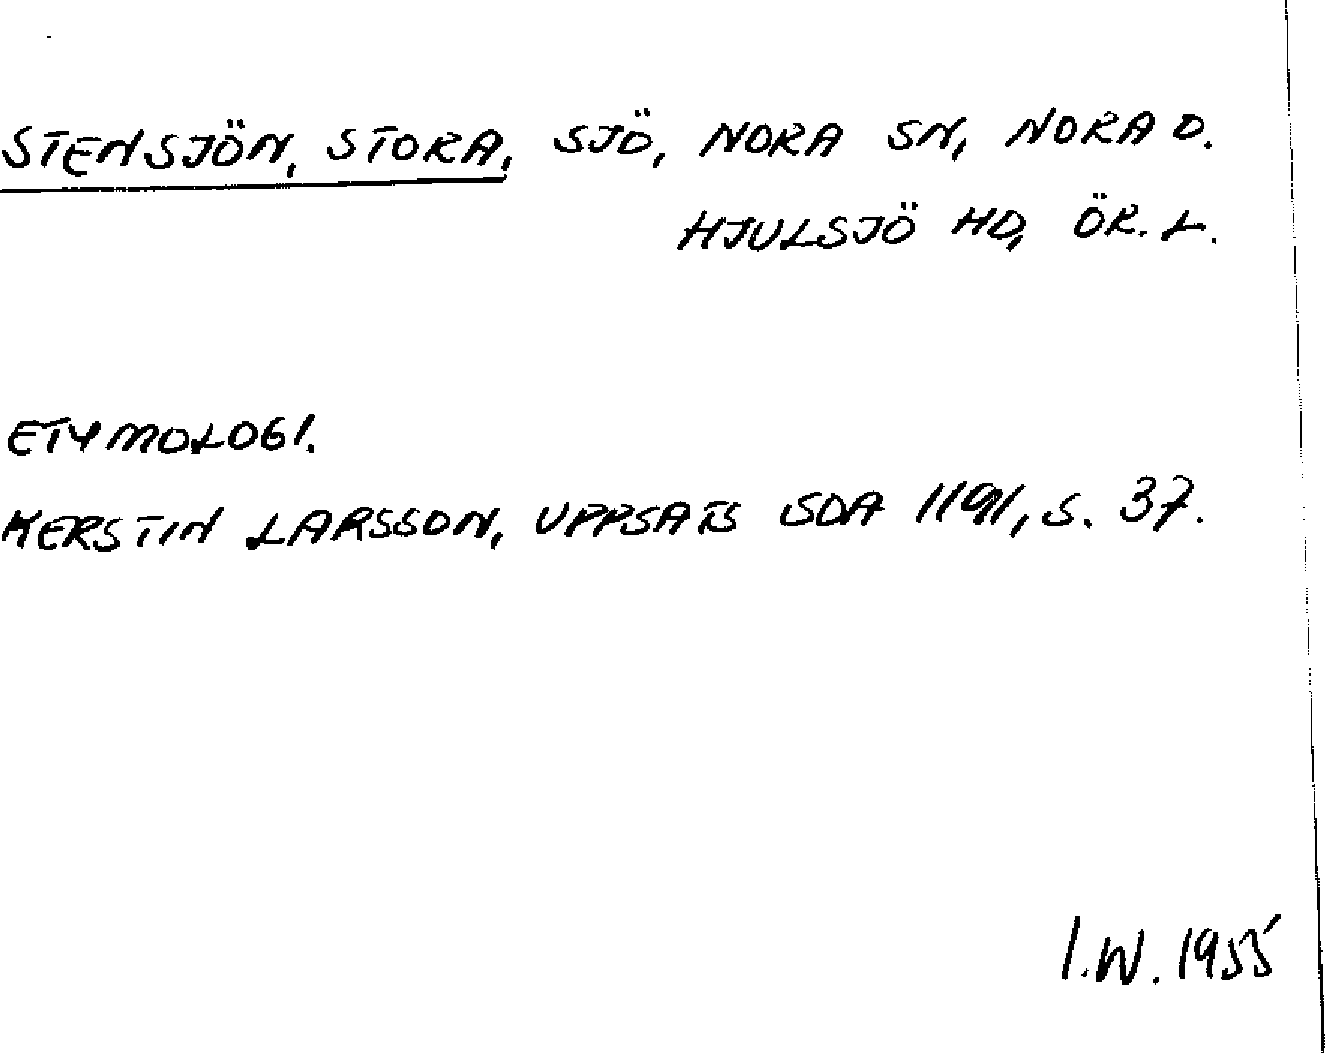 STENSJÖN, STORA, SJÖ, NORA SN, NORA O.
HJULSJÖ HD, ÖR. L.
ETYMOLOGI.
KERSTIN LARSSON, UPPSATS SOA s. 37.
I.W. 1955